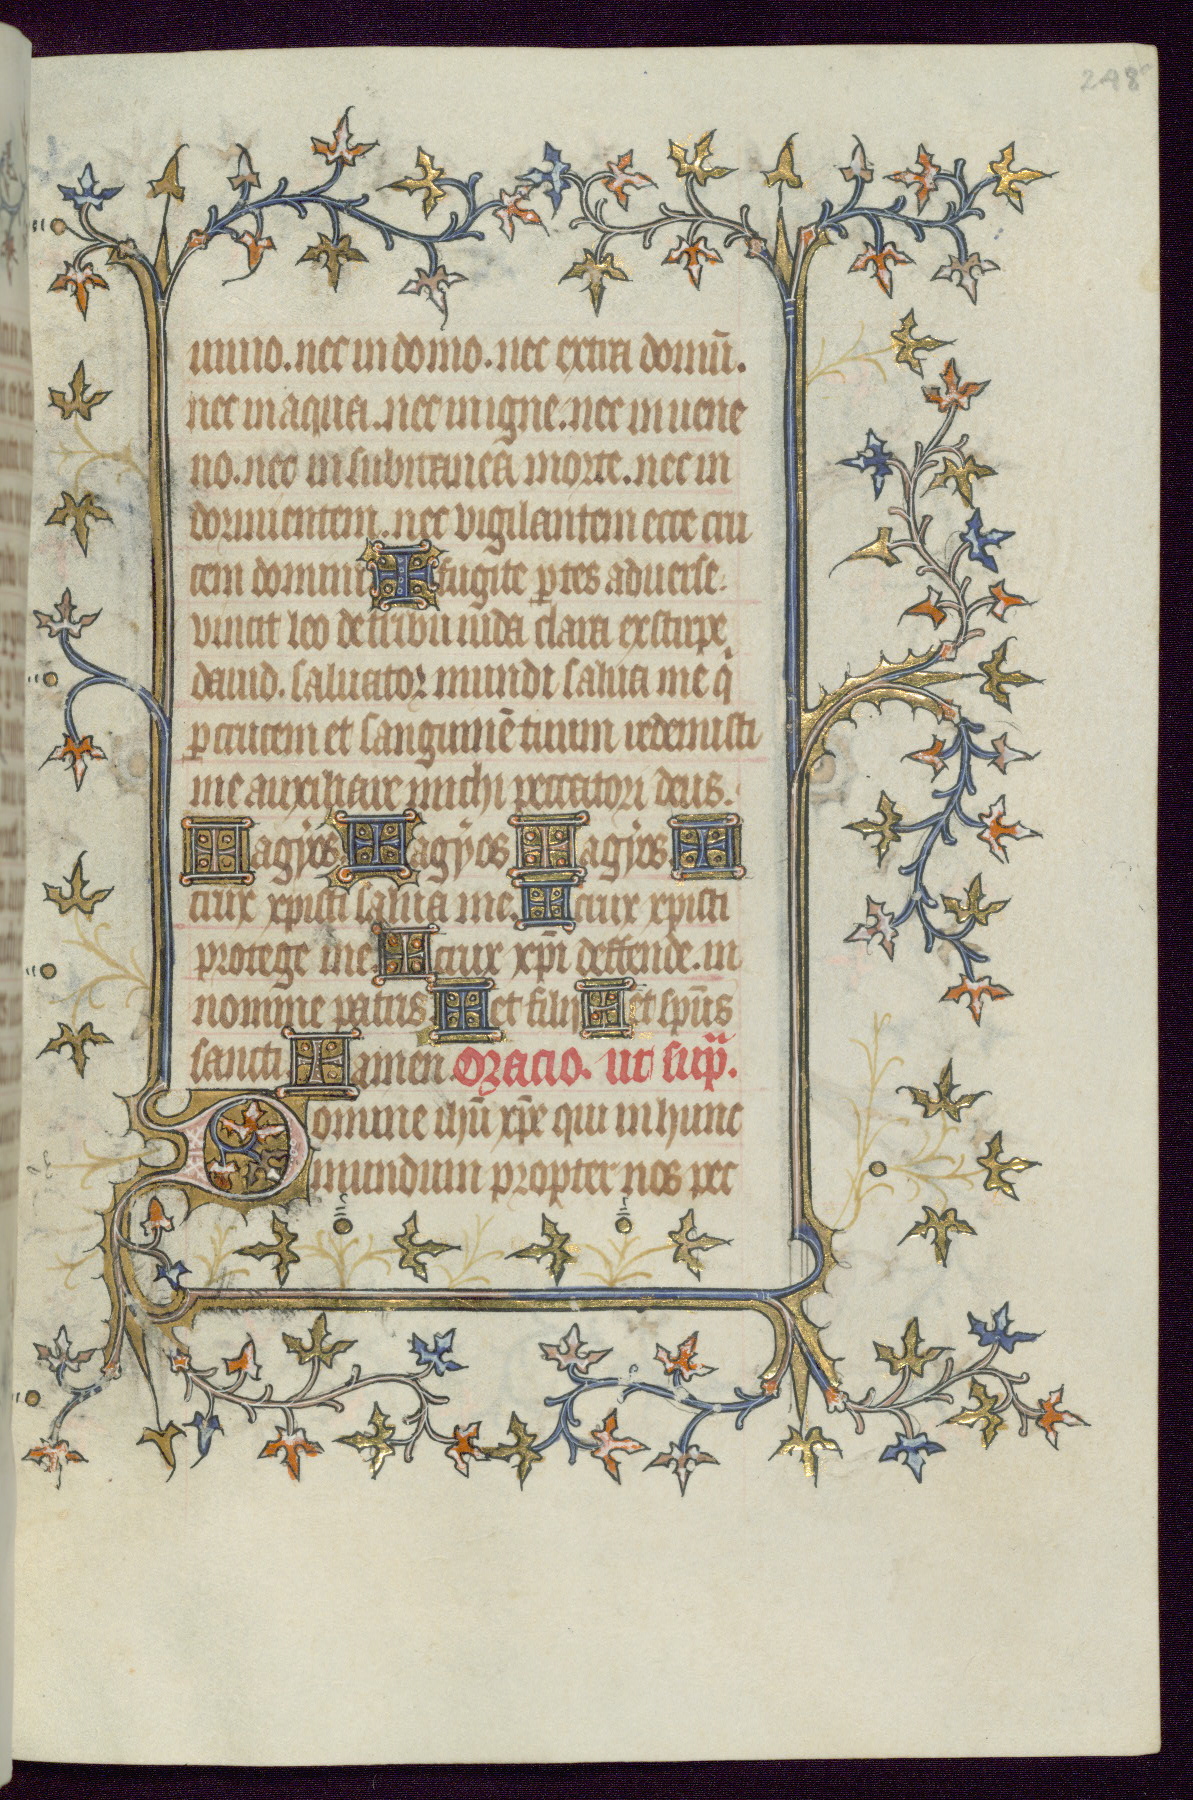 248
unno. nec in domo. nec extra domū.
nec in aqua. nec in igne. nec in uene
no. nec in subitanea morte. nec in
dormientem. nec vigilantem ecce cru
cem domini ✠ fugite ꝑtes aduerse.
vincit leo de tribu iuda clara ex stirpe
dauid. saluator mundi salua me q̇
ꝑ crucem et sanguinē tuum redemisti
me auxiliare michi peccatori deus.
✠ agyos ✠ agyos ✠ agyos ✠
crux xpisti salua me. ✠ crux xpisti
protege me ✠ crux xp̄i deffende. in
nomine patris ✠ et filij ✠ et sp̄us
sancti ✠ amen. Oracio. ut sup̄.
Domine ihū xp̄e qui in hunc
mundum propter nos pec